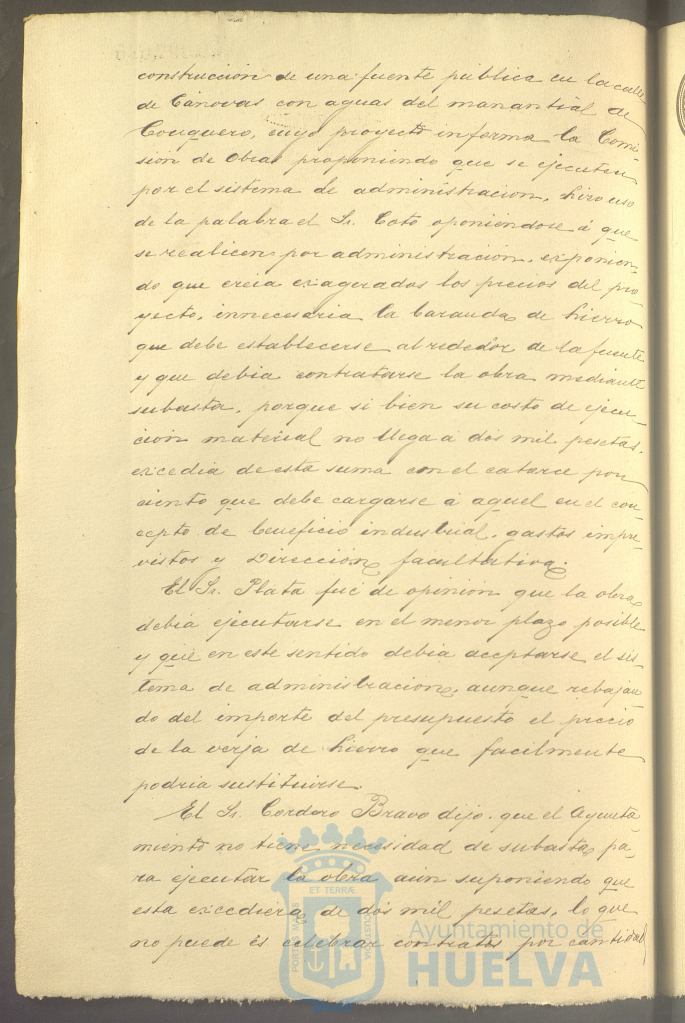 construccion de una fuente pública en la calle
de Cánovas con aguas del manantial de
Conquero, cuyo proyecto informa la Comi-
sión de Obras proponiendo que se ejecuten
por el sistema de administracion, hizo uso
de la palabra el Sr. Coto oponiendose á que
se realicen por administración, exponien-
do que creia exagerados los precios del pro-
yecto, innecesaria la baranda de hierro
que debe establecerse alrededor de la fuente
y que debia contratarse la obra mediante
subasta, porque si bien su costo de ejecu-
ción material no llega á dos mil pesetas,
excedia de esta suma con el catorce por
ciento que debe cargarse á aquel en el con-
cepto de beneficio industrial, gastos impre-
vistos y Dirección facultativa.
El Sr. Plata fué de opinión que la obra
debia ejecutarse en el menor plazo posible
y que en este sentido debia aceptarse el sis-
tema de administracion, aunque rebajan-
do del importe del presupuesto el precio
de la verja de hierro que facilmente
podria sustituirse.
El Sr. Cordero Bravo dijo, que el Ayunta-
miento no tiene necesidad de subasta pa-
ra ejecutar la obra aún suponiendo que
esta excediera de dos mil pesetas, lo que
no puede es celebrar contratos por cantidad
PORTUS MARIS ET TERRÆ CUSTODIA
Ayuntamiento de
HUELVA